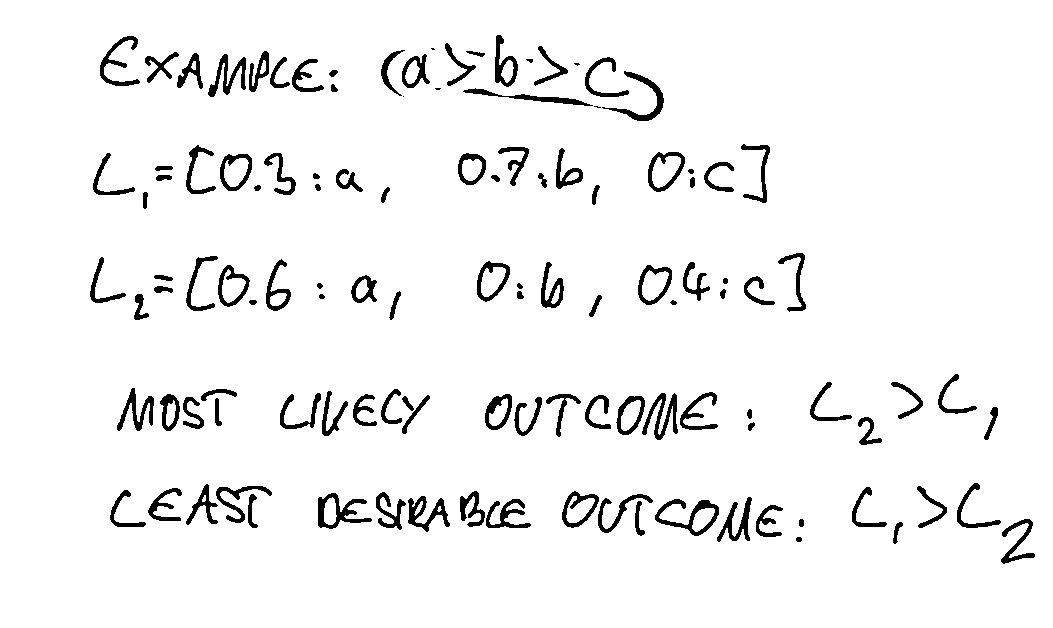 EXAMPLE: (a>b>c)
L₁=[0.3:a, 0.7:b, 0:c]
L₂=[0.6:a, 0:b, 0.4:c]
MOST LIKELY OUTCOME: L₂>L₁
LEAST DESIRABLE OUTCOME: L₁>L₂